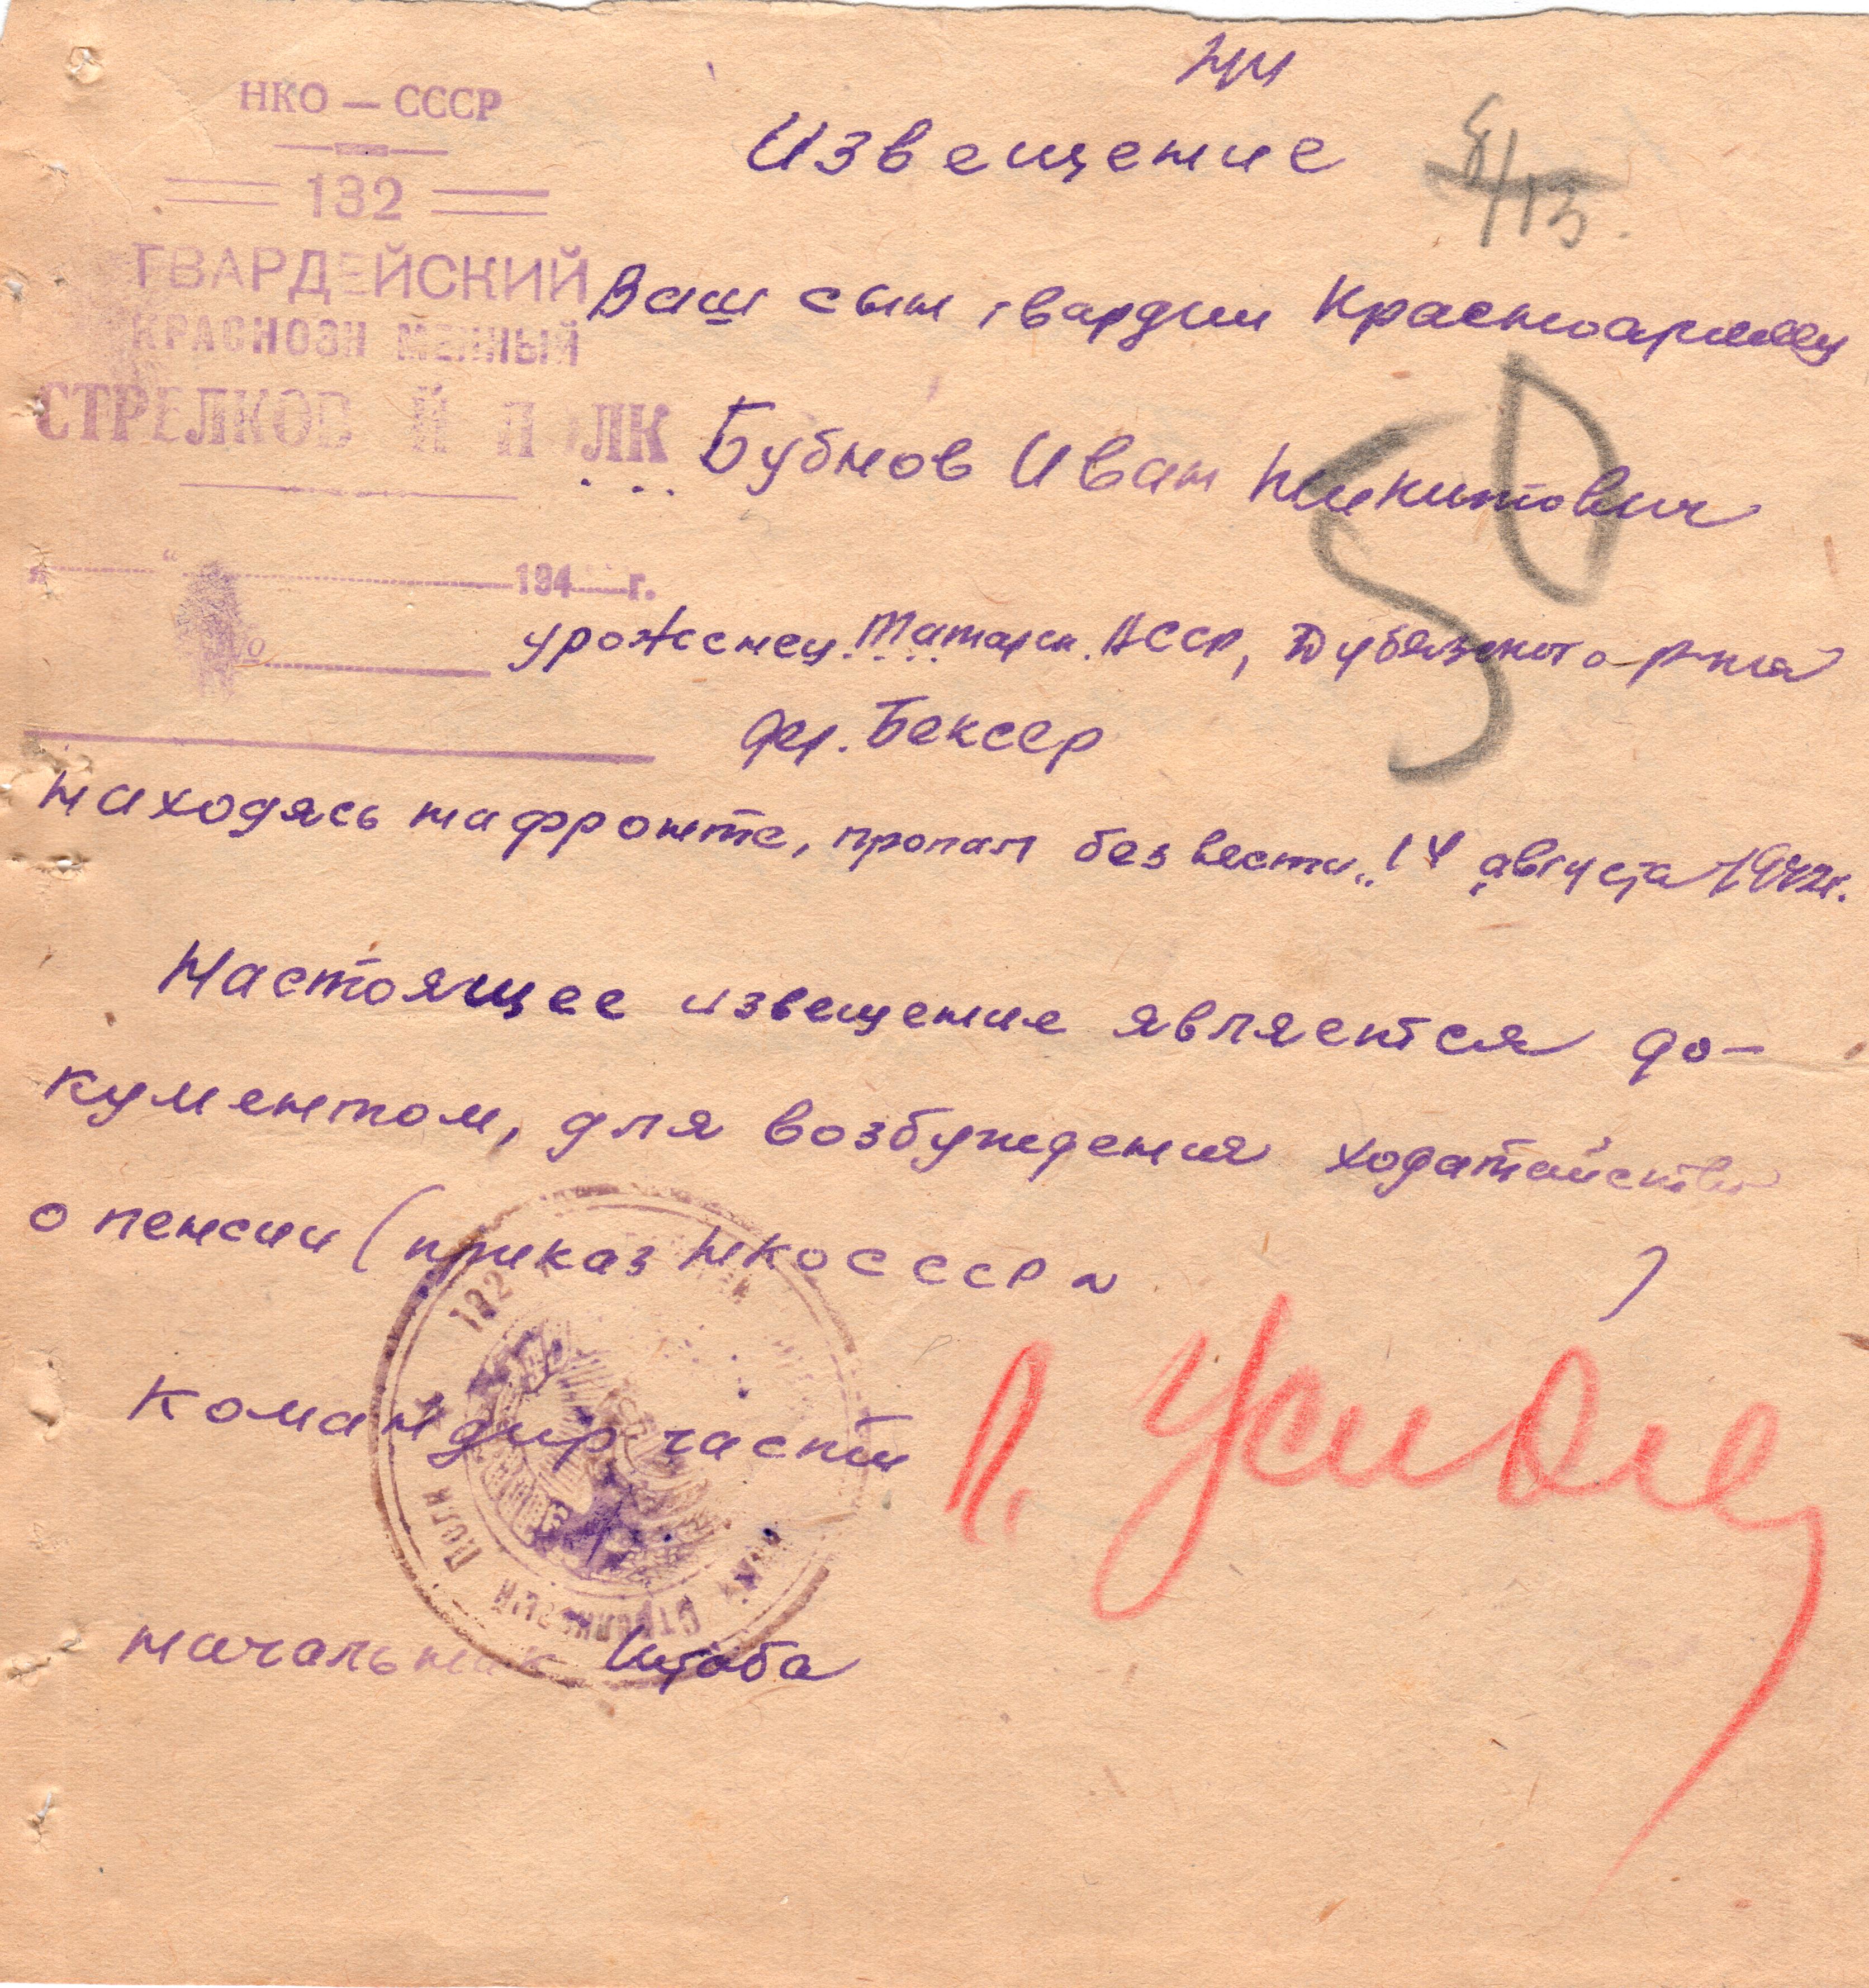 НКО — СССР
132
ГВАРДЕЙСКИЙ
КРАСНОЗН МЕННЫЙ
СТРЕЛКОВ Й П ЛК
„ “ 194 г.
Извещение
Ваш сын гвардии Красноармеец
Бубнов Иван Никитович
урожснец Татарск. АССР, Дубязского р-на
дер. Бексер
находясь на фронте, пропал без вести „14" августа 1942г.
Настоящее извещение является до-
кументом, для возбуждения ходатайства
о пенсии (приказ НКО СССР N )
Командир части
Начальник Штаба
132
Стрелковый Полк
50